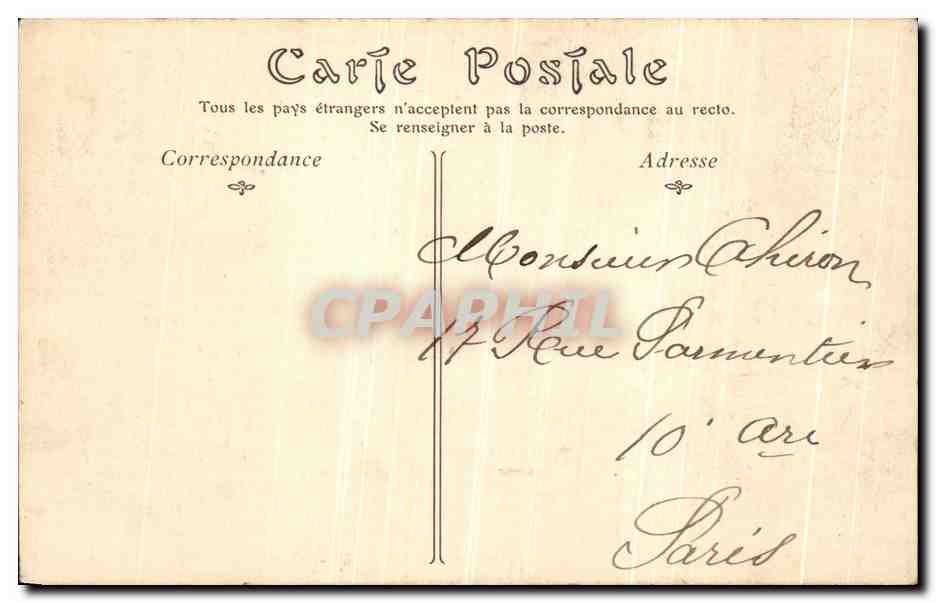 Carte Postale
Tous les pays étrangers n'acceptent pas la correspondance au recto.
Se renseigner à la poste.
Correspondance
Adresse
Monsieur Chiron
CPAPHIL
17 Rue Parmentier
10e Are
Paris